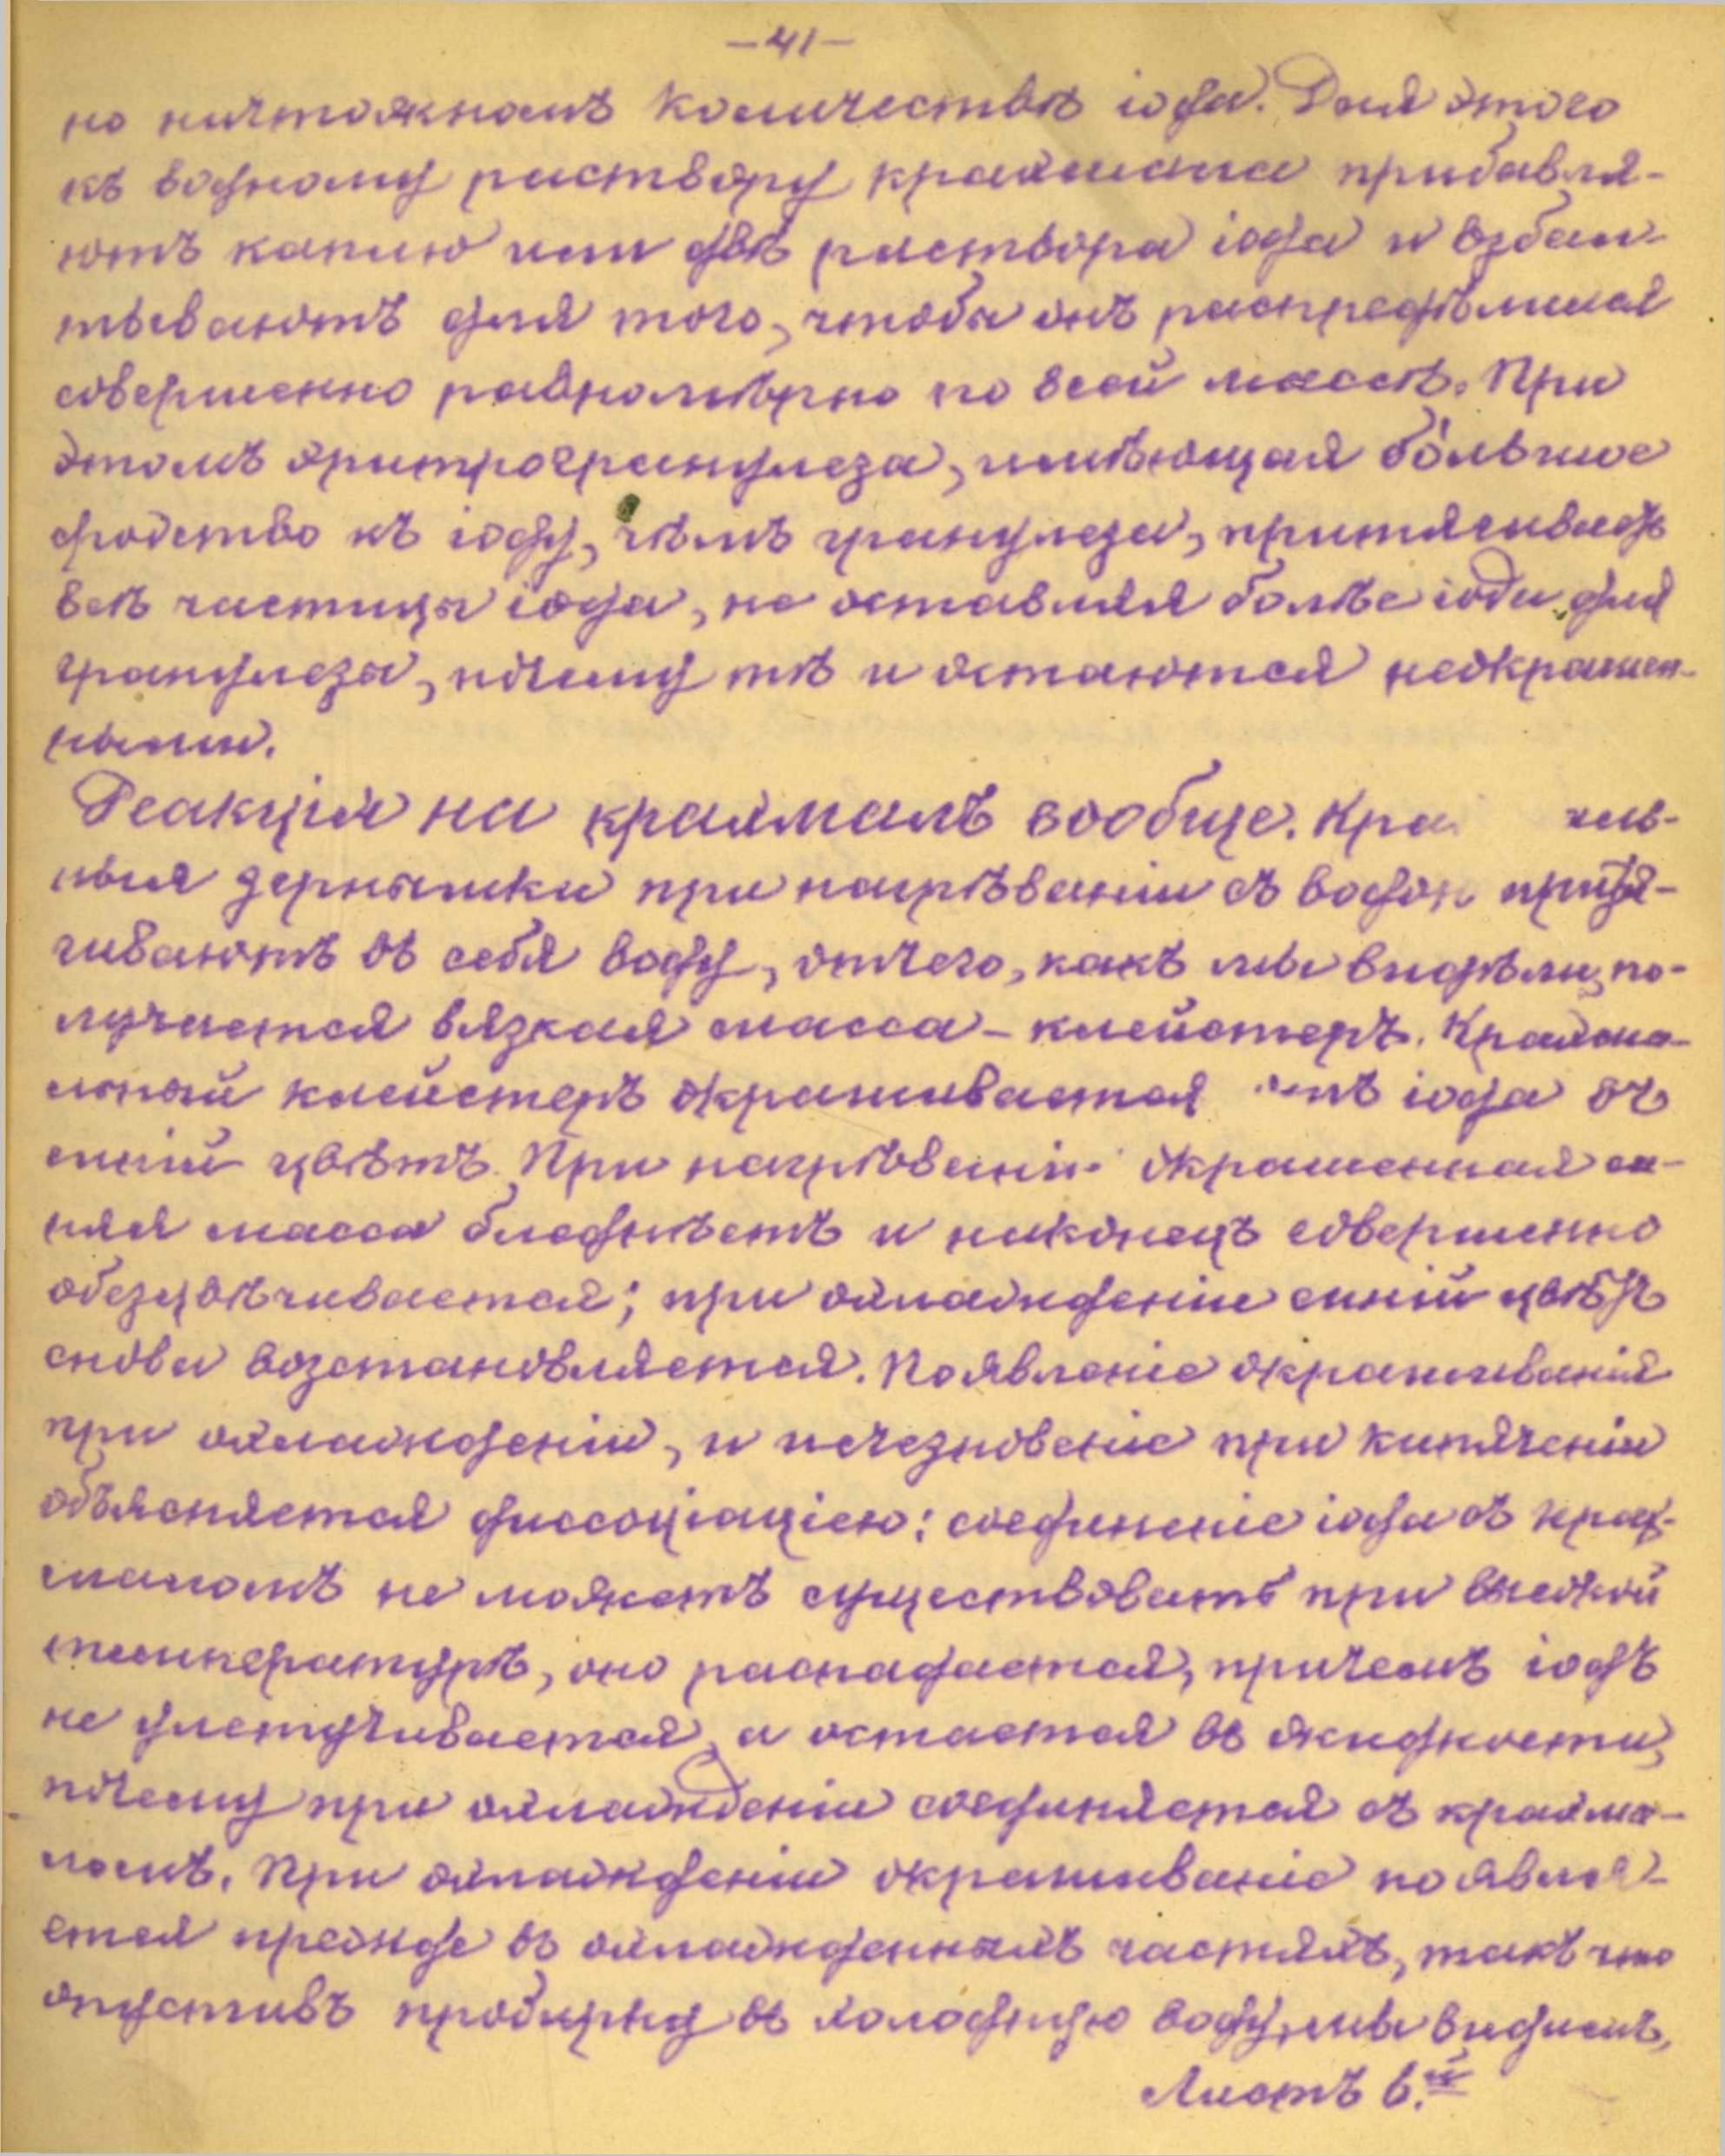 —41—
но ничтожномъ количествѣ іода. Для этого
къ водному раствору крахмала прибавля-
ютъ каплю или двѣ раствора іода и взбал-
тываютъ для того, чтобы онъ распредѣлился
совершенно равномѣрно по всей массѣ. При
этомъ эритрогранулеза, имѣющая бо́льшое
сродство къ іоду, чѣмъ гранулеза, притягиваетъ
всѣ частицы іода, не оставляя болѣе іода для
гранулеза, почему тѣ и остаются неокрашен-
ными.
Реакція на крахмалъ вообще. Кра мль-
ныя зернышки при нагрѣваніи съ водою притя-
гиваютъ въ себя воду, отчего, какъ мы видѣли, по-
лучается вязкая масса – клейстеръ. Крахма-
льный клейстеръ окрашивается отъ іода въ
синій цвѣтъ. При нагрѣваніи окрашенная си-
няя масса блѣднѣетъ и наконецъ совершенно
обезцвѣчивается; при охлажденіи синій цвѣтъ
снова возстановляется. Появленіе окрашиванія
при охлажденіи, и исчезновеніе при кипяченіи
объясняется диссоціаціею: соединеніе іода съ крах-
маломъ не можетъ существовать при высокой
температурѣ, оно распадается, причемъ іодъ
не улетучивается, а остается въ жидкости,
почему при охлажденіи соединяется съ крахма-
ломъ. При охлажденіи окрашиваніе появля-
ется прежде въ охлажденныхъ частяхъ, такъ что
опустивъ пробирку въ холодную воду, мы видимъ,
Листъ 6.й